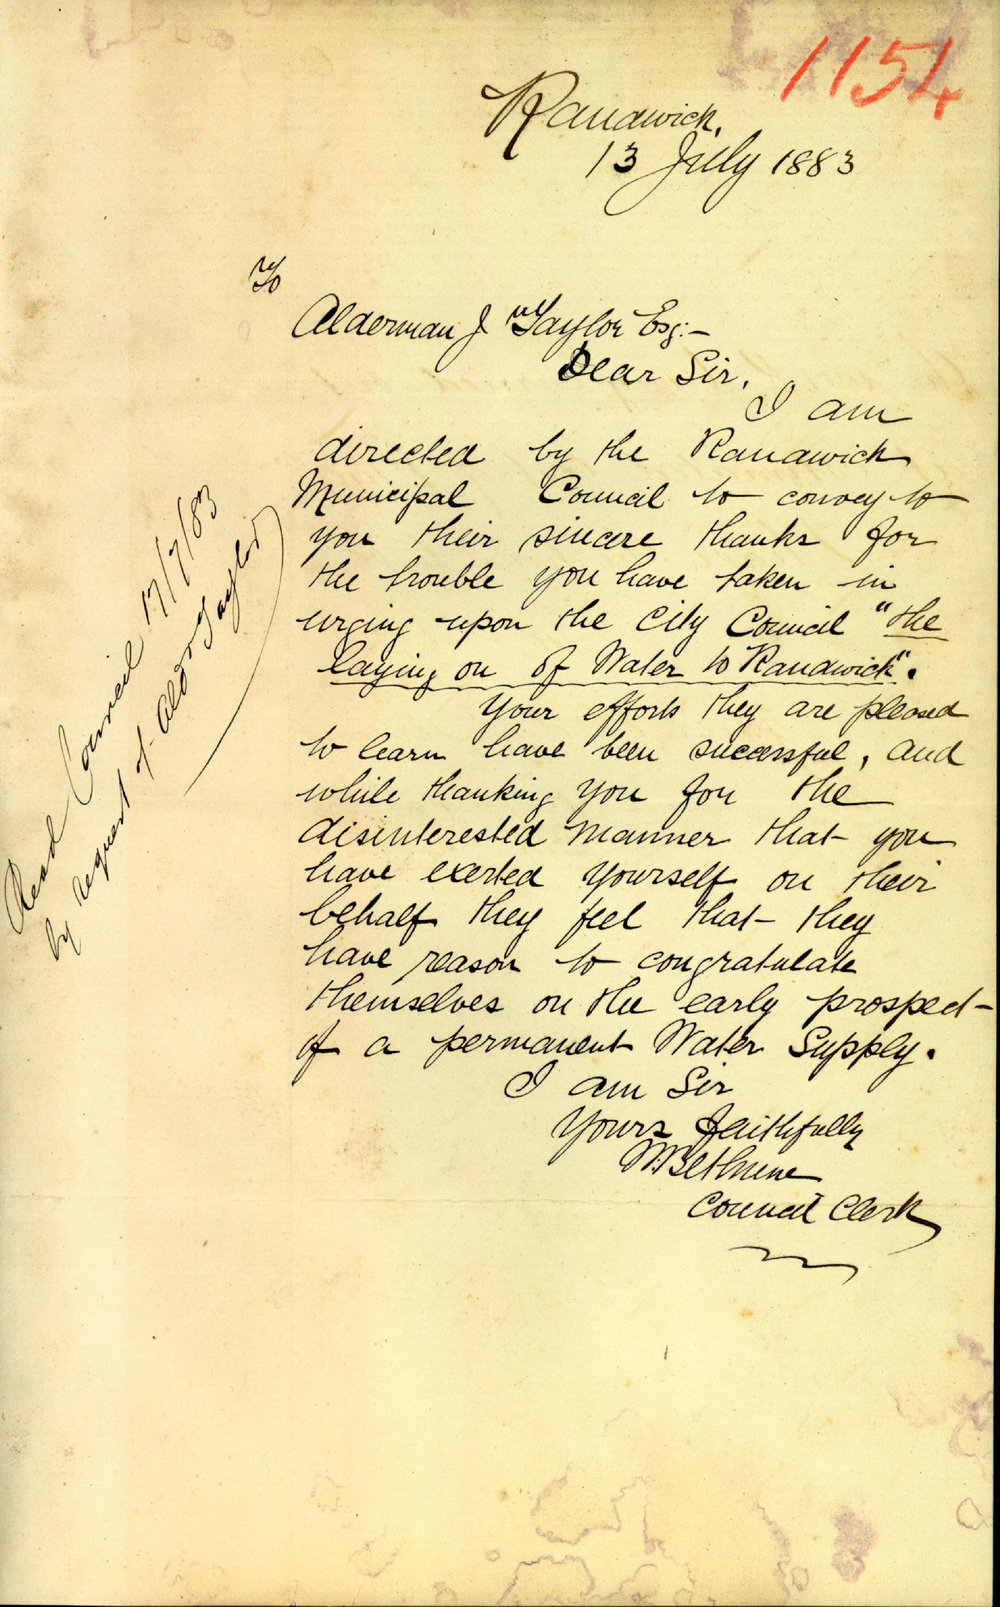 1154
Randwick,
13 July 1883
To
Alderman J Taylor Esq:-
Dear Sir,
I am
directed by the Randwick
Municipal Council to convey to
you their sincere thanks for
the trouble you have taken in
urging upon the City Council "the
laying on of Water to Randwick".
Your efforts they are pleased
to learn have been successful, and
while thanking you for the
disinterested manner that you
have exerted yourself on their
behalf they feel that they
have reason to congratulate
themselves on the early prospect
of a permanent Water Supply.
I am Sir
Yours faithfully
Council Clerk
Read Council 17/7/83
by request of Aldr Taylor